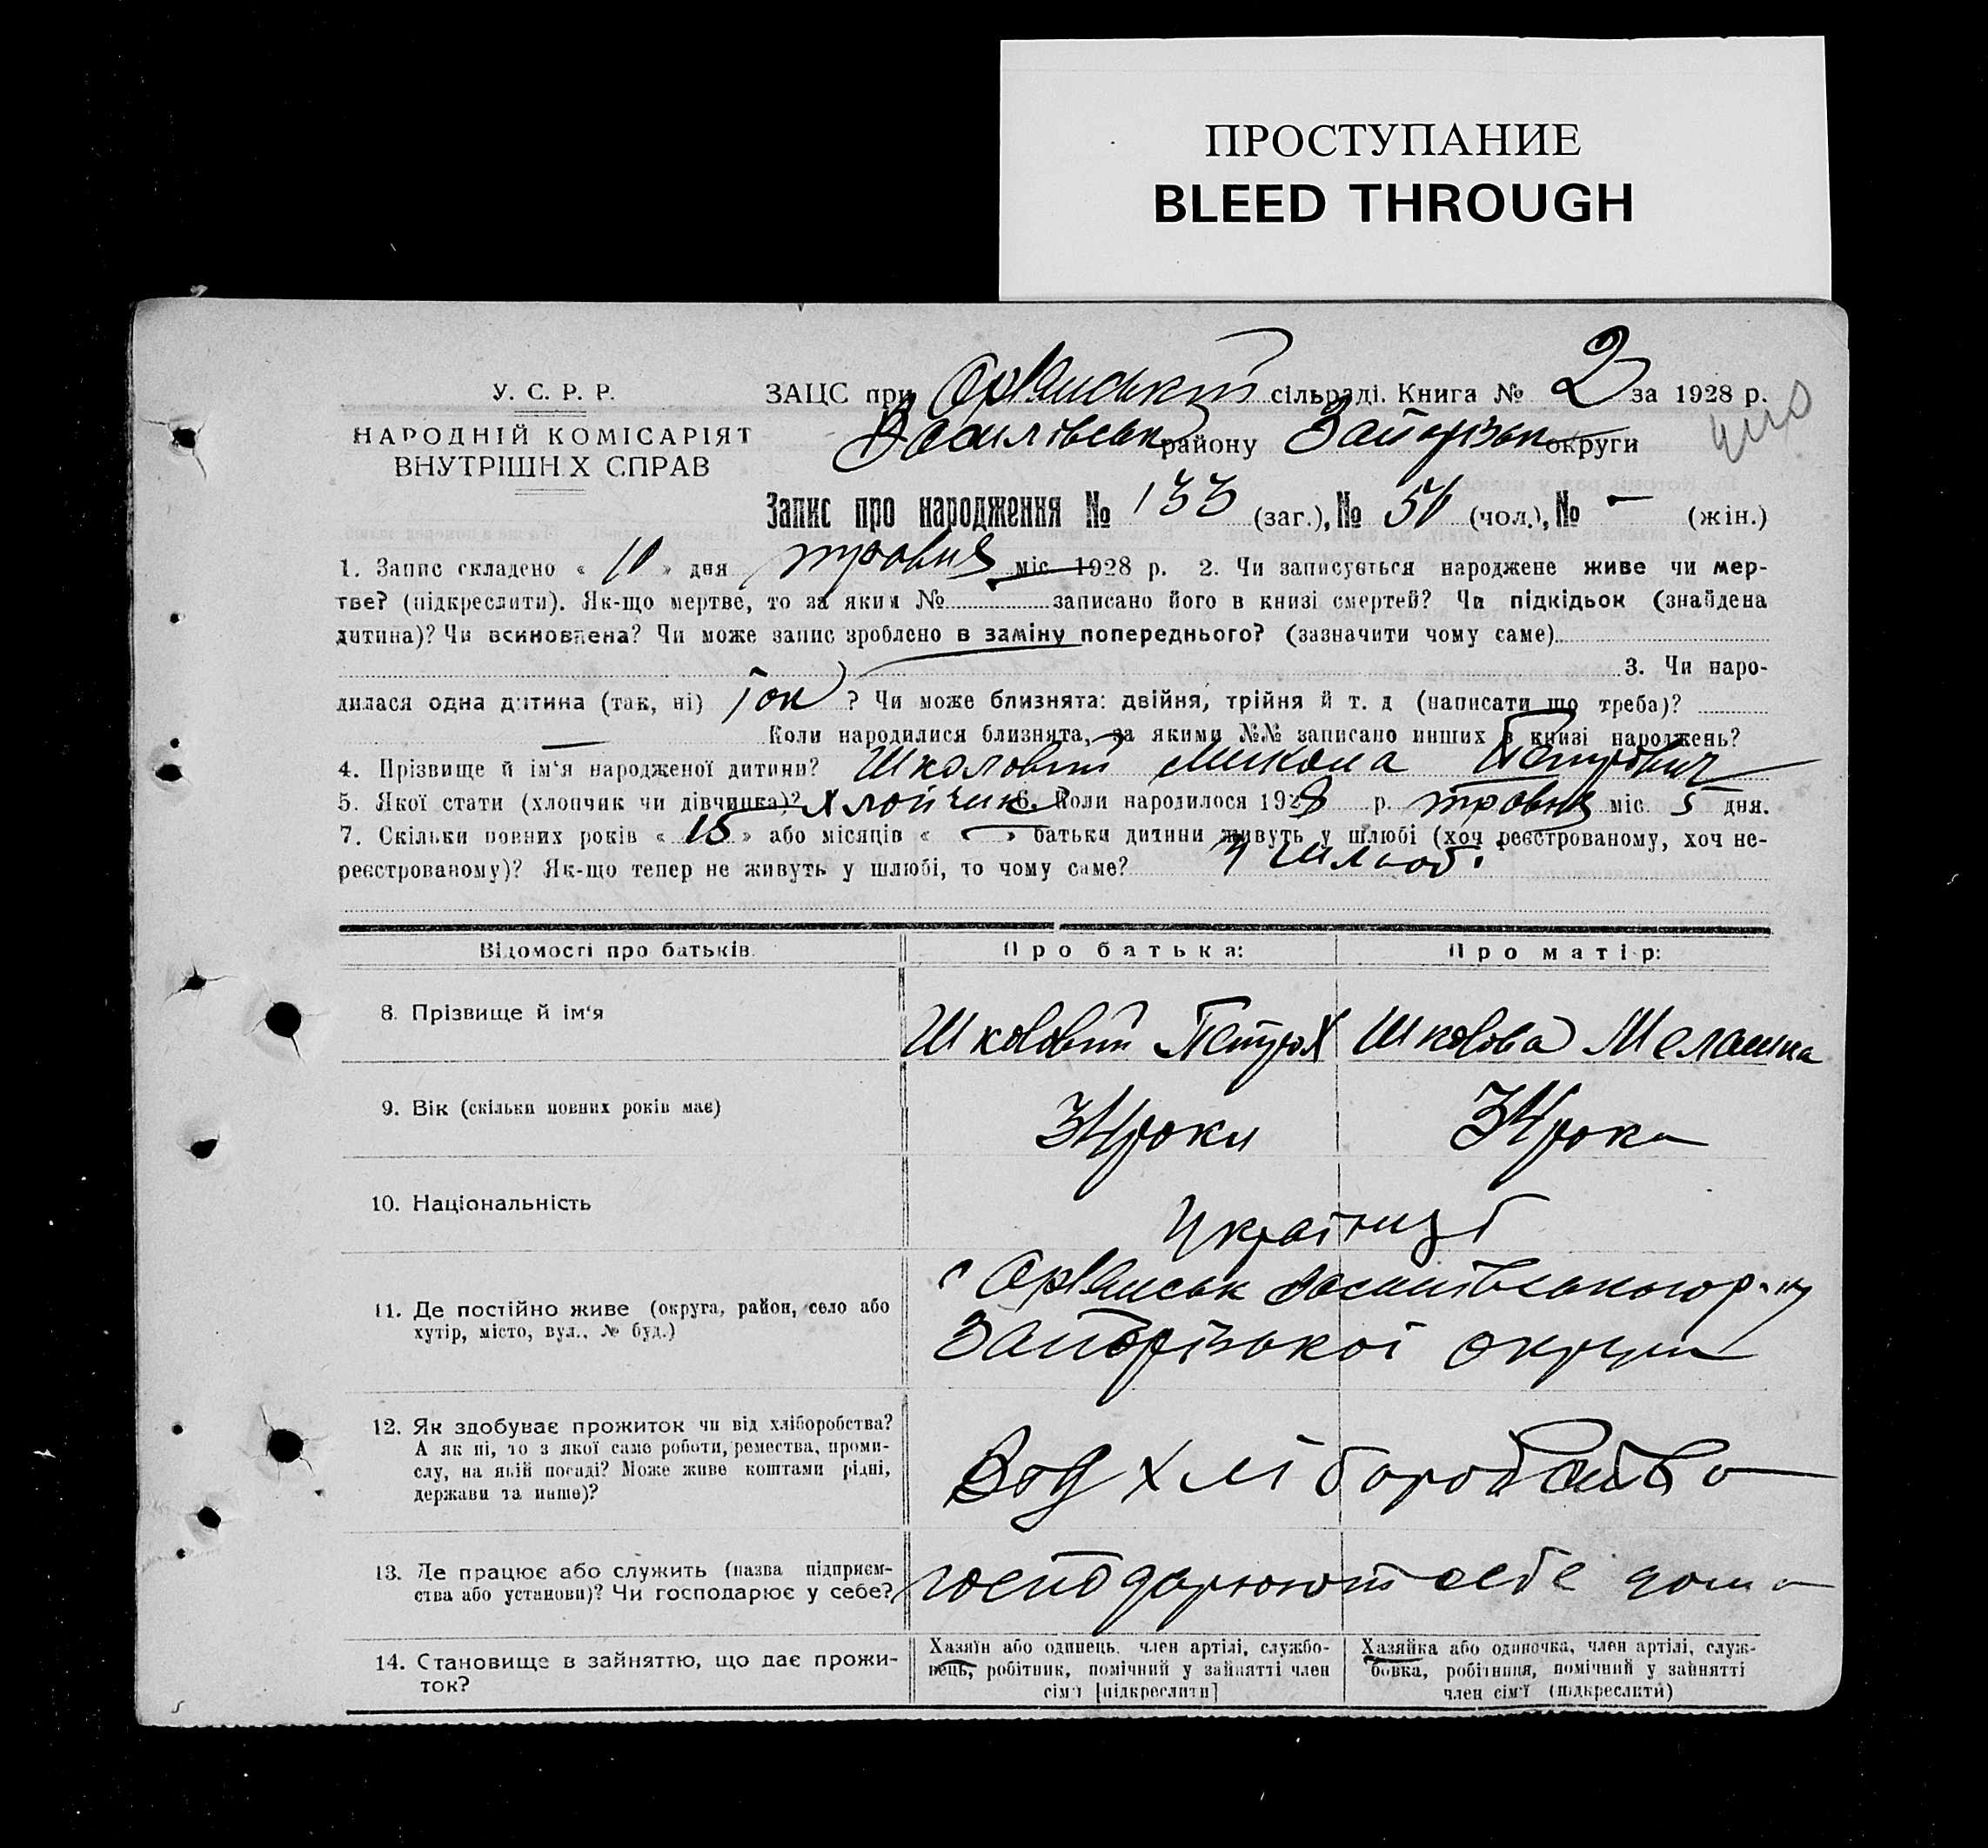 ПРОСТУПАНИЕ
BLEED THROUGH
У. С. Р. Р.
НАРОДНІЙ КОМІСАРІЯТ
ВНУТРІШН Х СПРАВ
ЗАЦС при Орлянський сільраді. Книга № 2 за 1928 р.
Василівськ району Запорізьк округи
Запис про народження № 133 (заг.), № (чол.), № — (жін.)
1. Запис складено « 10 » дня травня міс 1928 р. 2. Чи записується народжене живе чи мер-
тве? (підкреслити). Як-що мертве, то за яким № записано його в книзі смертей? Чи підкідьок (знайдена
дитина)? Чи всиновлена? Чи може запис зроблено в заміну попереднього? (зазначити чому саме)
3. Чи наро-
дилася одна дитина (так, ні) так ? Чи може близнята: двійня, трійня й т. д (написати що треба)?
— Коли народилися близнята, за якими №№ записано инших в книзі народжень?
4. Прізвище й ім'я народженої дитини? Шкаловий Микола Петрович
5. Якої стати (хлопчик чи дівчинка)? Хлопчик 6. Коли народилося 1928 р. травня міс. 5 дня.
7. Скільки повних років « 15 » або місяців « — » батьки дитини живуть у шлюбі (хоч реєстрованому, хоч не-
реєстрованому)? Як-що тепер не живуть у шлюбі, то чому саме? У шлюбі
Відомості про батьків. Про батька: Про матір:
8. Прізвище й ім'я Шкловий Петро Шклова Мелашка
9. Вік (скільки повних років має) 34 роки 34 роки
10. Національність Українці
11. Де постійно живе (округа, район, село або
хутір, місто, вул., № буд.)
с Орлянськ Василівського р-ну
Запорізької округи
12. Як здобуває прожиток чи від хліборобства?
А як ні, то з якої саме роботи, ремества, проми-
слу, на якій посаді? Може живе коштами рідні,
держави та инше)?
Вод хліборобства
13. Де працює або служить (назва підприєм-
ства або установи)? Чи господарює у себе?
господарюють себе дома
14. Становище в зайняттю, що дає прожи-
ток?
Хазяїн або одинець, член артілі, службо-
вець, робітник, помічний у зайнятті член
сім'ї [підкреслити]
Хазяйка або одиночка, член артілі, служ-
бовка, робітниця, помічний у зайнятті
член сім'ї (підкреслити)